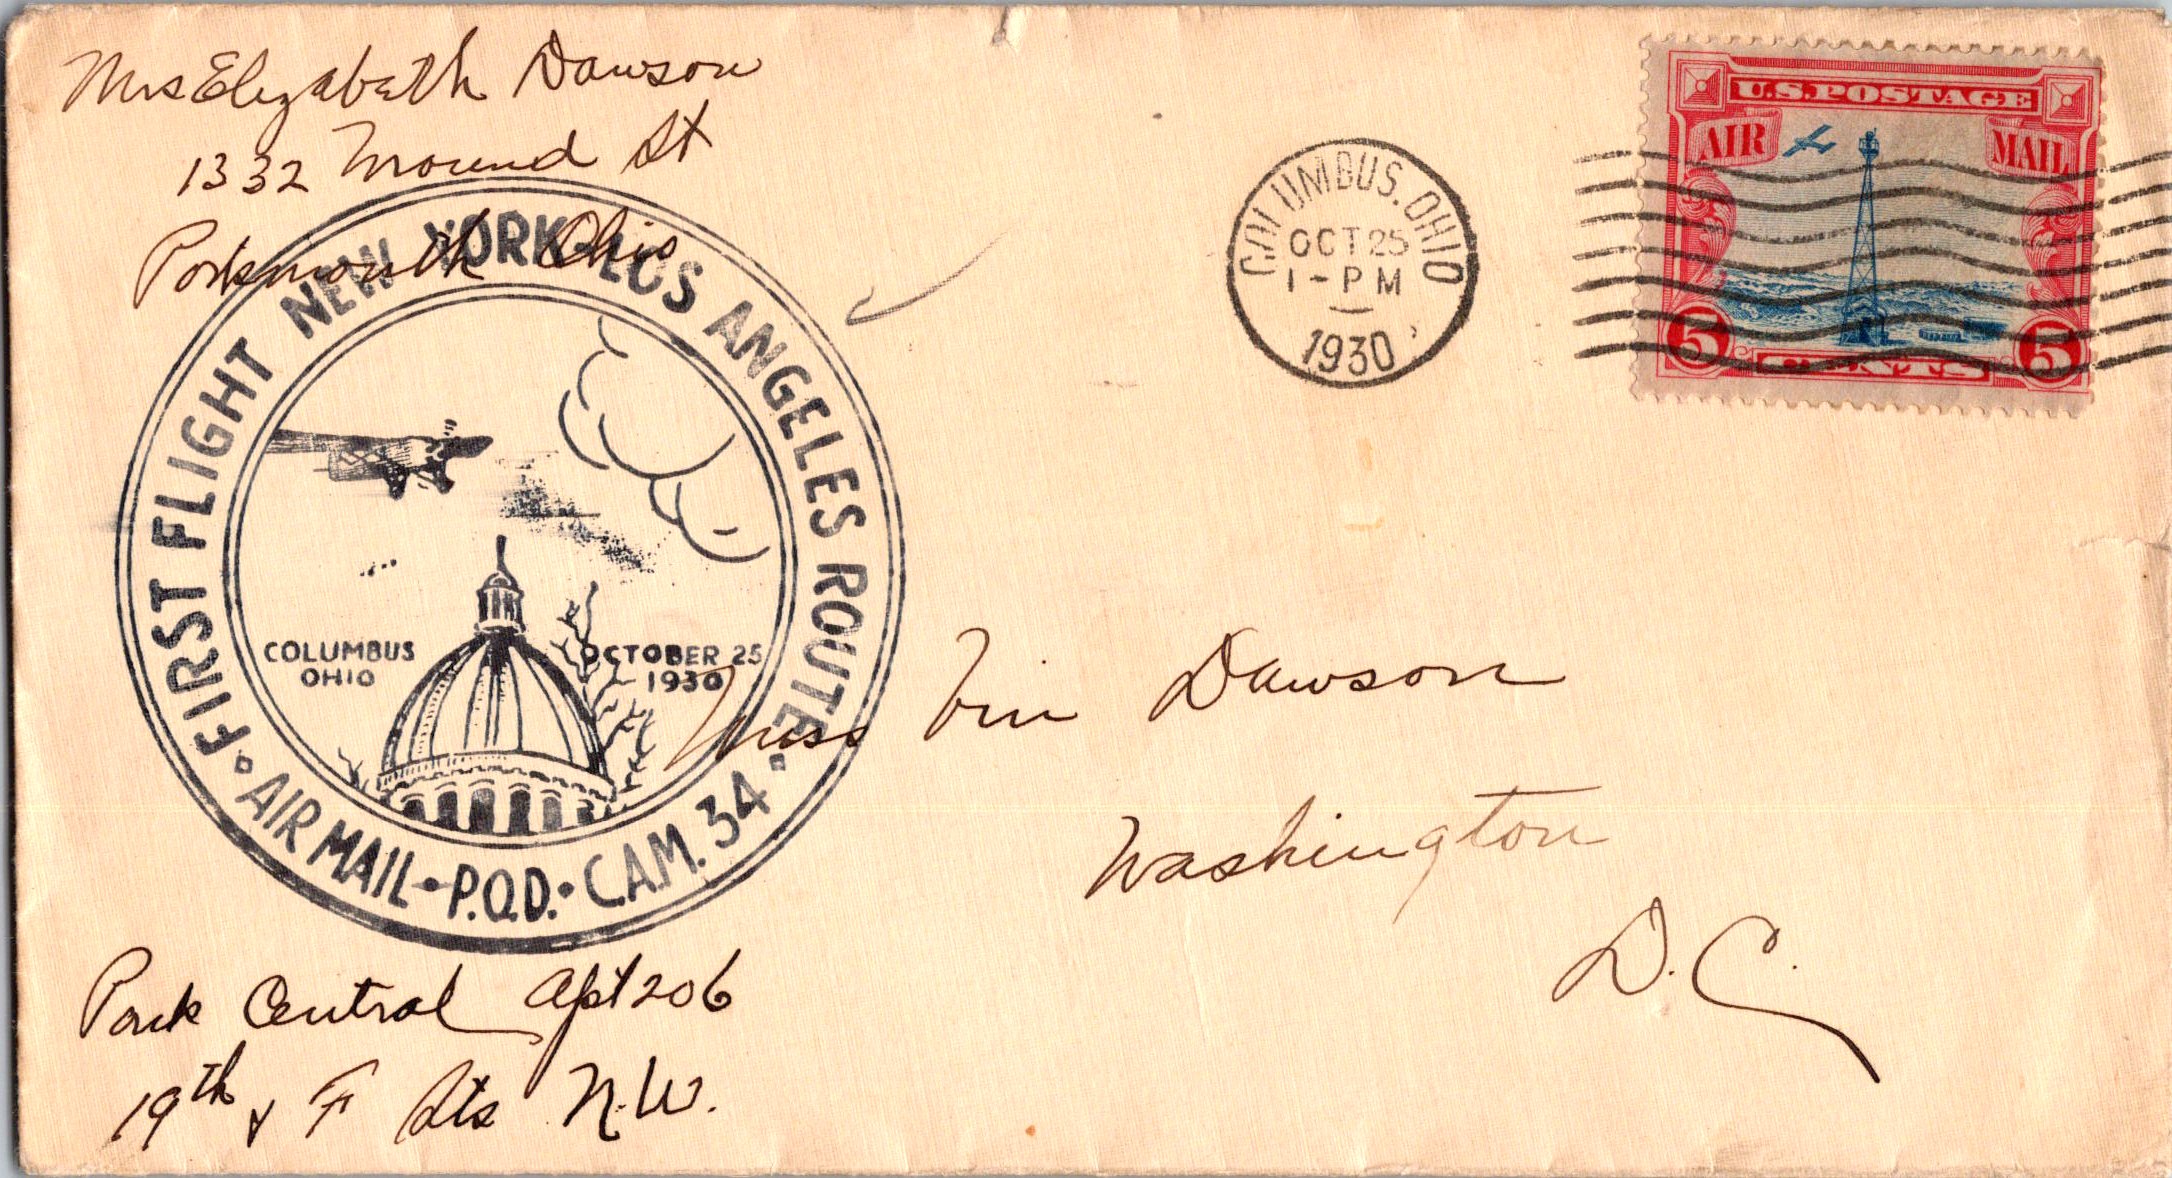 Mrs Elizabeth Dawson
1332 Mound St
Portsmouth Ohio
FIRST FLIGHT NEW YORK-LOS ANGELES ROUTE
AIR MAIL • P.O.D. • C.A.M. 34
COLUMBUS
OHIO
OCTOBER 25
1930
COLUMBUS, OHIO
OCT 25
1-PM
1930
U.S. POSTAGE
AIR MAIL
5 CENTS 5
Miss Dawson
Washington
D.C.
Park Central Apt 206
19th & F Sts N.W.